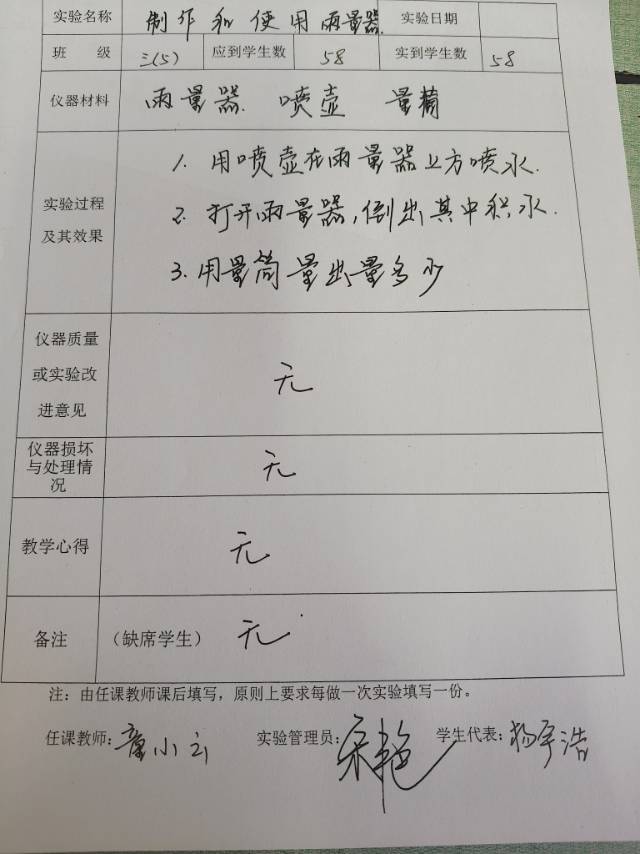 实验名称 制作和使用雨量器 实验日期
班 级 三(5) 应到学生数 58 实到学生数 58
仪器材料 雨量器 喷壶 量筒
1. 用喷壶在雨量器上方喷水.
实验过程
2. 打开雨量器,倒出其中积水.
及其效果
3. 用量筒量出量多少
仪器质量
或实验改
进意见
无
仪器损坏
与处理情
况
无
教学心得 无
备注 (缺席学生) 无.
注:由任课教师课后填写,原则上要求每做一次实验填写一份。
任课教师:童小云 实验管理员: 学生代表:杨宇浩